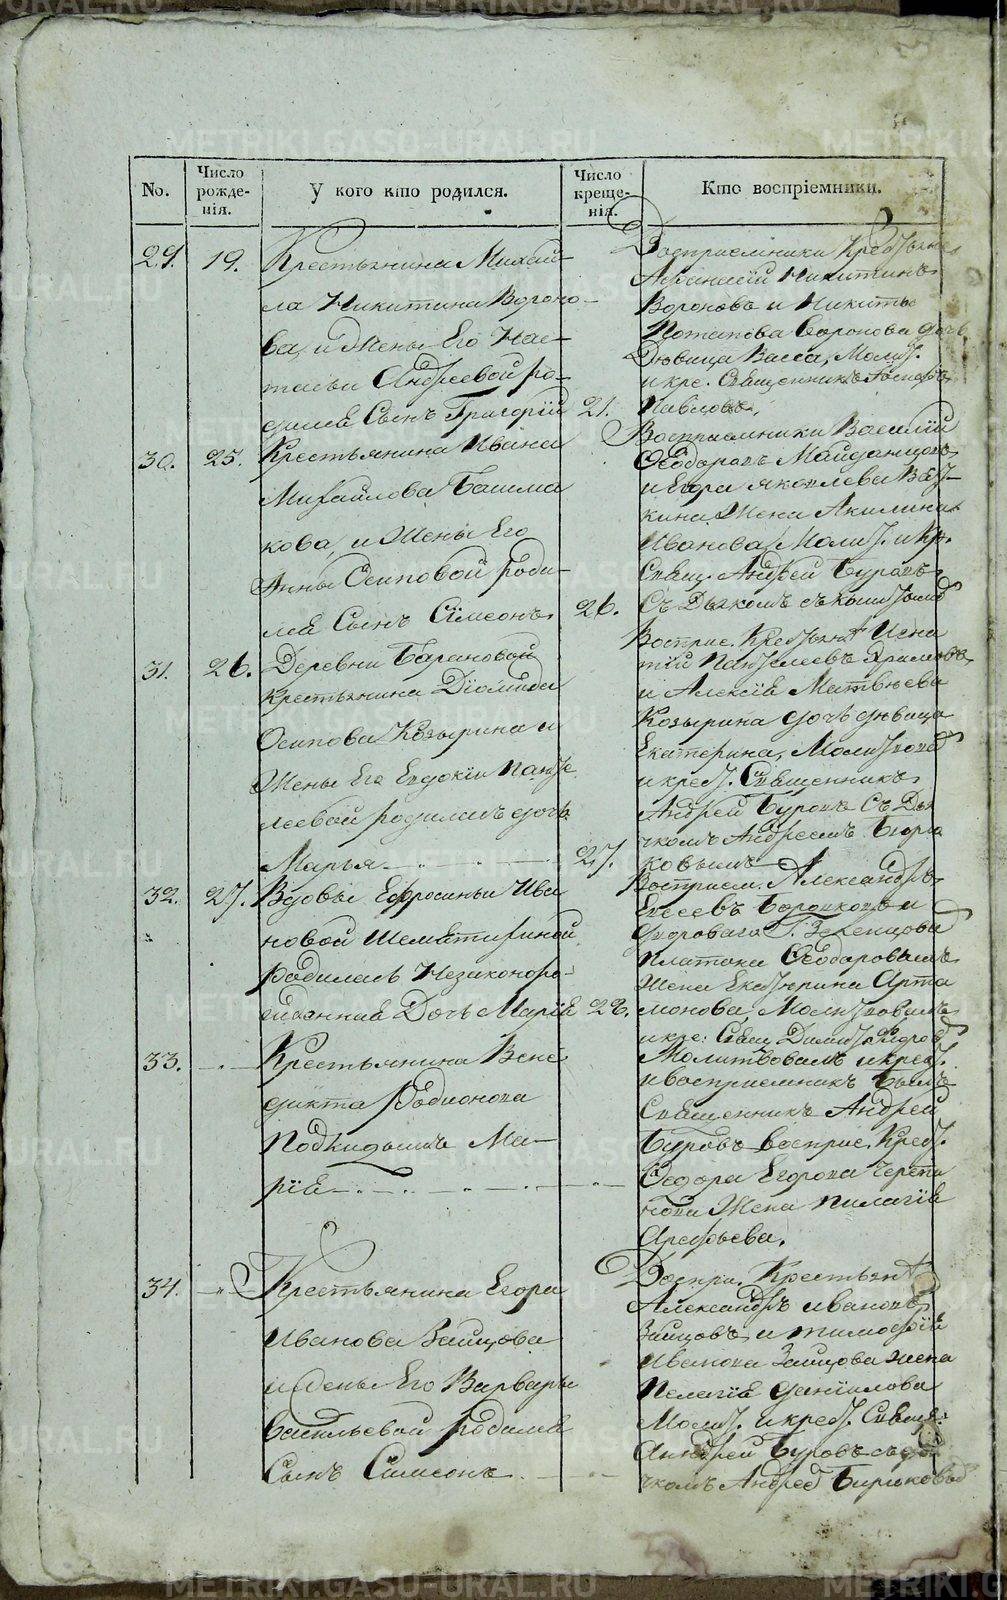 No.
Число рожде-нія.
У кого кто родился.
Число креще-нія.
Кто воспріемники.
29.
19.
Крестьянина Михай-
ла Никитина Вороно-
ва, и Жены Его Нас-
тасьи Андреевой ро-
дился Сынъ Григорій
21.
Воспріемники Крест
Никитинъ
Вороновъ и Никиты
Потапова Воронова дочь
Дѣвица Васса, Молит.
и кре. Священникъ
Павловъ.
30.
25.
Крестьянина Ивана
Михайлова Башма
кова, и Жены Его
Анны Осиповой роди-
ля Сынъ Сімеонъ
26.
Воспріемники Василій
Ѳеодоровъ
и Егора Яковлева
кина Жена Акилина
Иванова, Молит. и кр.
Свящ. Андрей Буровъ
Съ Дьячкомъ
31.
26.
Деревни Барановой
Крестьянина Діомида
Осипова Козырина и
Жены Его Евдокіи Панте
леевой родилась дочь
Марья
27.
Воспріе. Крестьян Игна
тій Пантелеевъ
и Алексія Матвѣева
Козырина дочь дѣвица
Екатерина, Молитвов
и крест. Священникъ
Андрей Буровъ Съ Дья
чкомъ Андреемъ Бирю
ковымъ
32.
27.
Вдовы Ефросиньи Ива
новой
родилась Незаконоро-
жденная Дочь Марія
28.
Воспріем. Александръ
Елисеевъ и
Г. Зеленцова
Платона Ѳеодорова
Жена Екатерина Арта
монова, Молитвовалъ
и кре: Свящ
33.
Крестьянина Вене
дикта Родионова
Подкидышъ Ма-
рія
Молитвовалъ и крест.
и воспріемникъ былъ
Священникъ Андрей
Буровъ воспріе. Крест.
Ѳедора Егорова Черепа
нова Жена Пилагія
Арефьева.
34.
Крестьянина Егора
Иванова Зайцова
и жены Его Варвары
Васильевой родился
Сынъ Симеонъ
Воспрі. Крестьян
Александръ Ивановъ
Зайцовъ и Тимофѣй
Иванова Зайцова жена
Пелагія Даніилова
Молит. и крест. Свящ:
Андрей Буровъ съ дья
чкомъ Андрее Бирюковы
METRIKI.GASO-URAL.RU